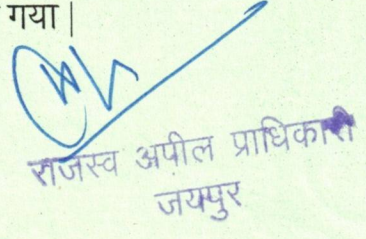 गया |
राजस्व अपील प्राधिकारी
जयपुर